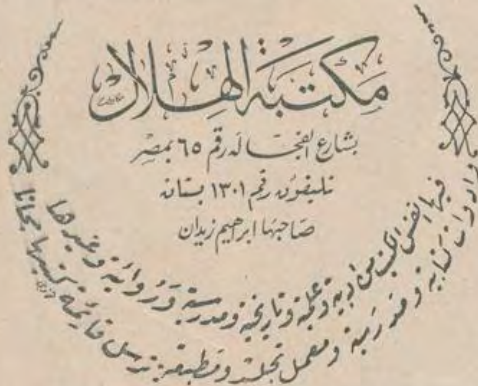 مكتبة الهلال
بشارع الفجاله رقم ٦٥ بمصر
تليفون رقم ١٣٠١ بستان
صاحبها ابرهيم زيدان
فيها انفس الكتب من ادبية وعلمية وتاريخية ومدرسية وروائية وغيرها
وادوات كتابية ومدرسية ومعمل تجليد ومطبعة ترسل قائمة كتبها مجانا